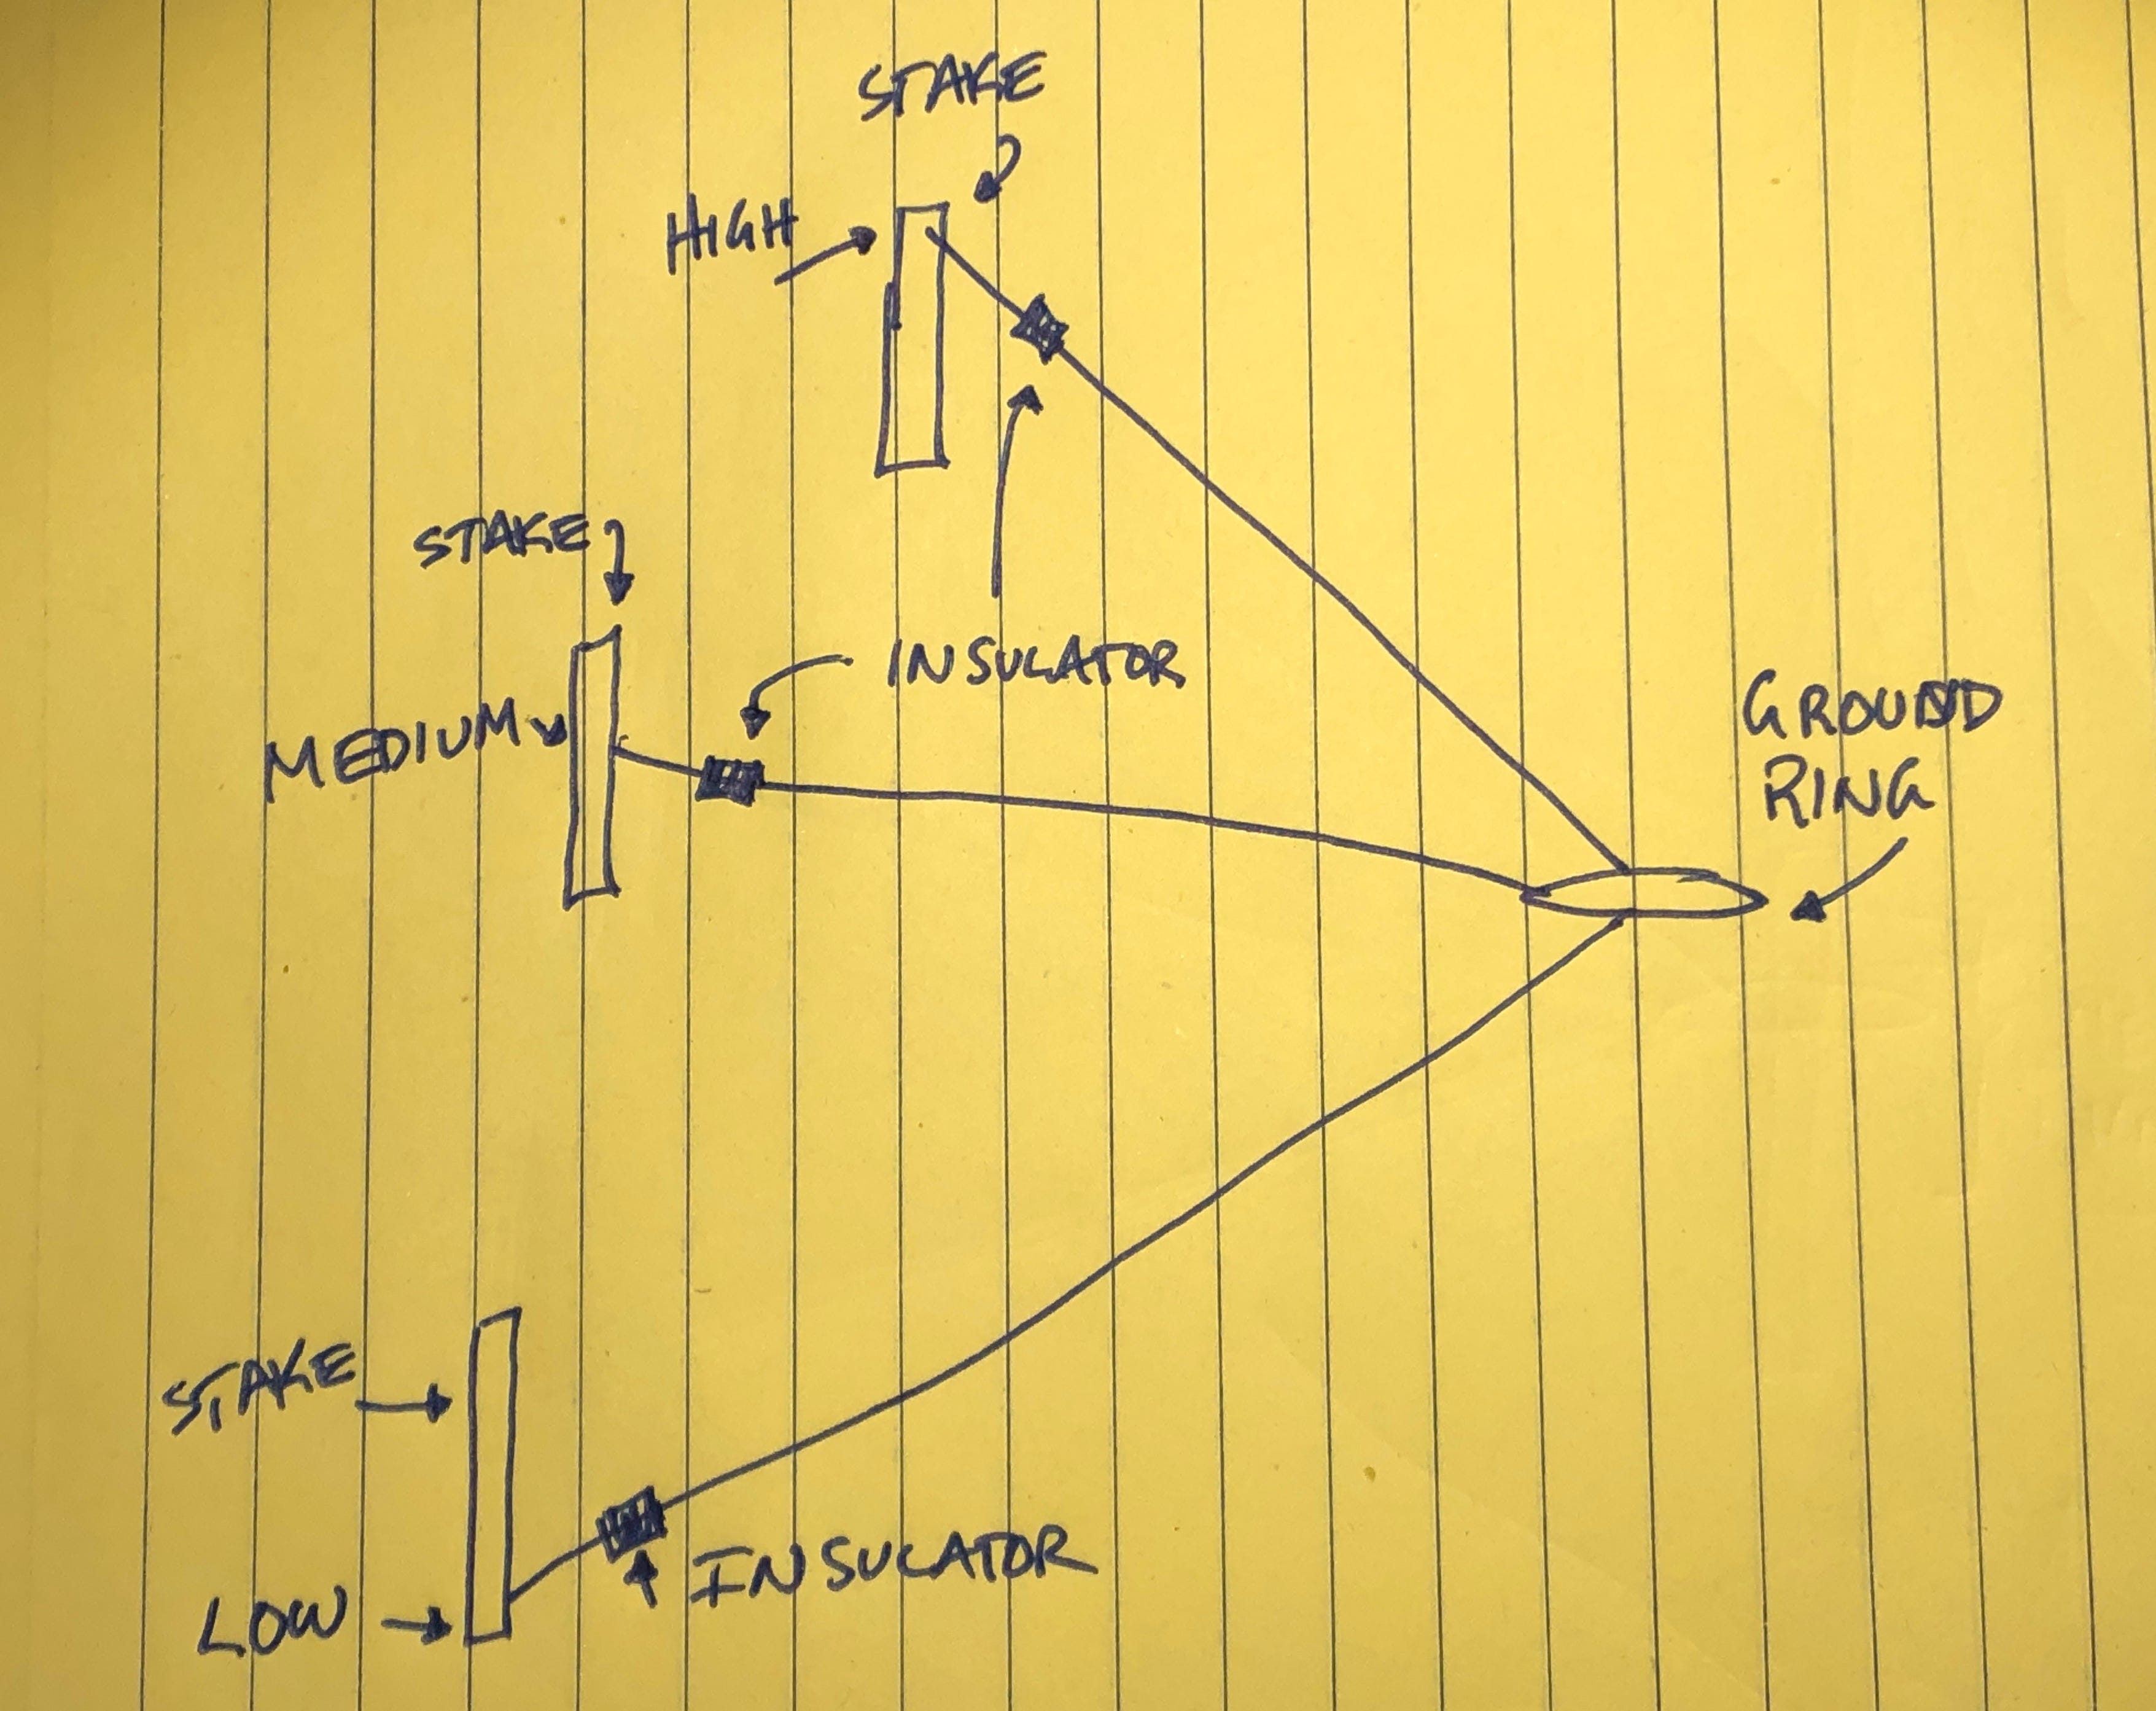 STAKE
HIGH
STAKE
INSULATOR
MEDIUM
GROUND
RING
STAKE
INSULATOR
LOW